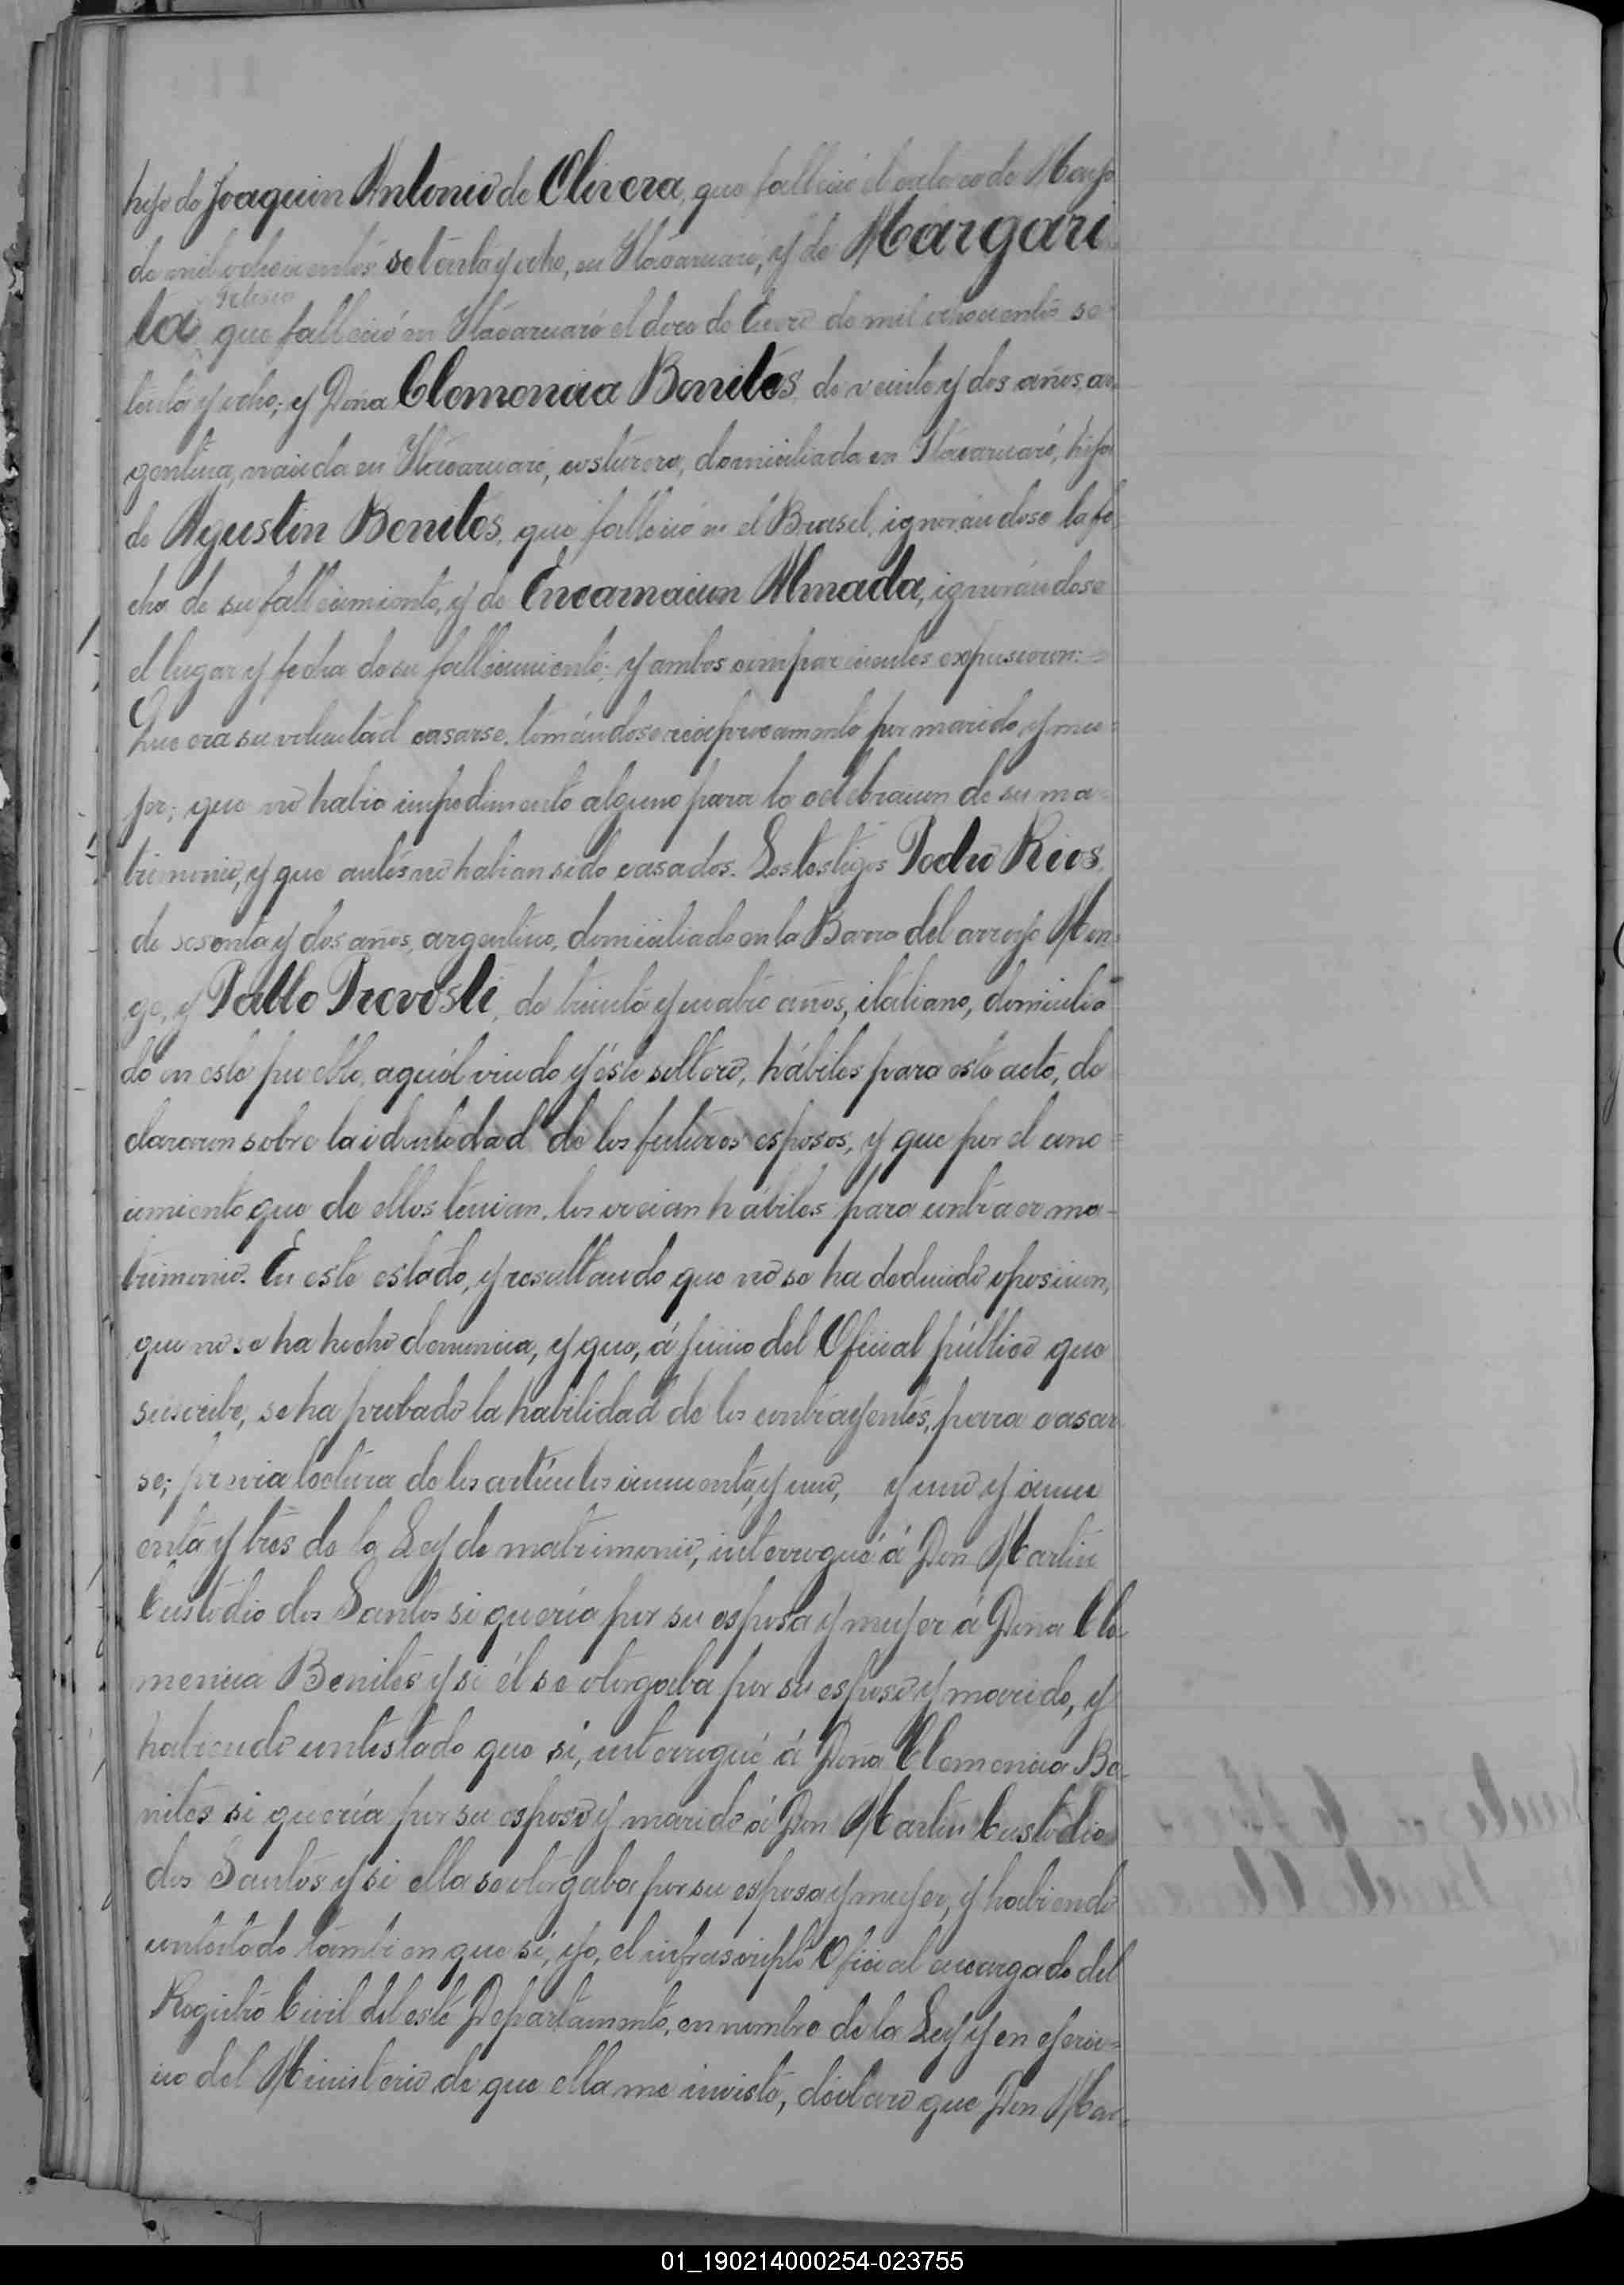 hijo de Joaquin Antonio de Olivera, que falleció el catorce de Mayo
de mil ochocientos setenta y ocho, en Itacaruaré, y de Margari
ta, que falleció en Itacaruaré el doce de Enero de mil ochocientos se-
tenta y ocho; y Doña Clemencia Benites, de veinte y dos años, ar-
gentina, nacida en Itacaruaré, costurera, domiciliada en Itacaruaré, hija
de Agustin Benites, que falleció en el Brasil, ignorándose la fe
cha de su fallecimiento, y de Encarnacion Almada, ignorándose
el lugar y fecha de su fallecimiento; y ambos comparecientes expusieron:
Que era su voluntad casarse, tomándose reciprocamente por marido y mu-
jer; que no habia impedimento alguno para la celebracion de su ma-
trimonio, y que antes no habian sido casados. Los testigos Pedro Rios,
de sesenta y dos años, argentino, domiciliado en la Barra del arroyo Mon-
ge, y Pablo Prevosti, de treinta y cuatro años, italiano, domicilia
do en este pueblo, aquél viudo y éste soltero, hábiles para este acto, de
clararon sobre la identidad de los futuros esposos, y que por el cono-
cimiento que de ellos tenian, los creian hábiles para contraer ma-
trimonio. En este estado, y resultando que no se ha deducido oposicion,
que no se ha hecho denuncia, y que, á juicio del Oficial público que
suscribe, se ha probado la habilidad de los contrayentes, para casar
se; previa lectura de los artículos cincuenta, y uno, y uno y cincu
enta y tres de la Ley de matrimonio, interrogué á Don Martin
Custodio dos Santos si queria por su esposa y mujer á Doña Cle-
mencia Benites y si él se otorgaba por su esposo y marido, y
habiendo contestado que si, interrogué á Doña Clemencia Be-
nites si quería por su esposo y marido á Don Martin Custodio
dos Santos y si ella se otorgaba por su esposa y mujer, y habiendo
contestado tambien que si, yo, el infrascripto Oficial encargado del
Registro Civil del este Departamento, en nombre de la Ley y en ejerci-
cio del Ministerio de que ella me inviste, declaro que Don Mar-
01_190214000254-023755